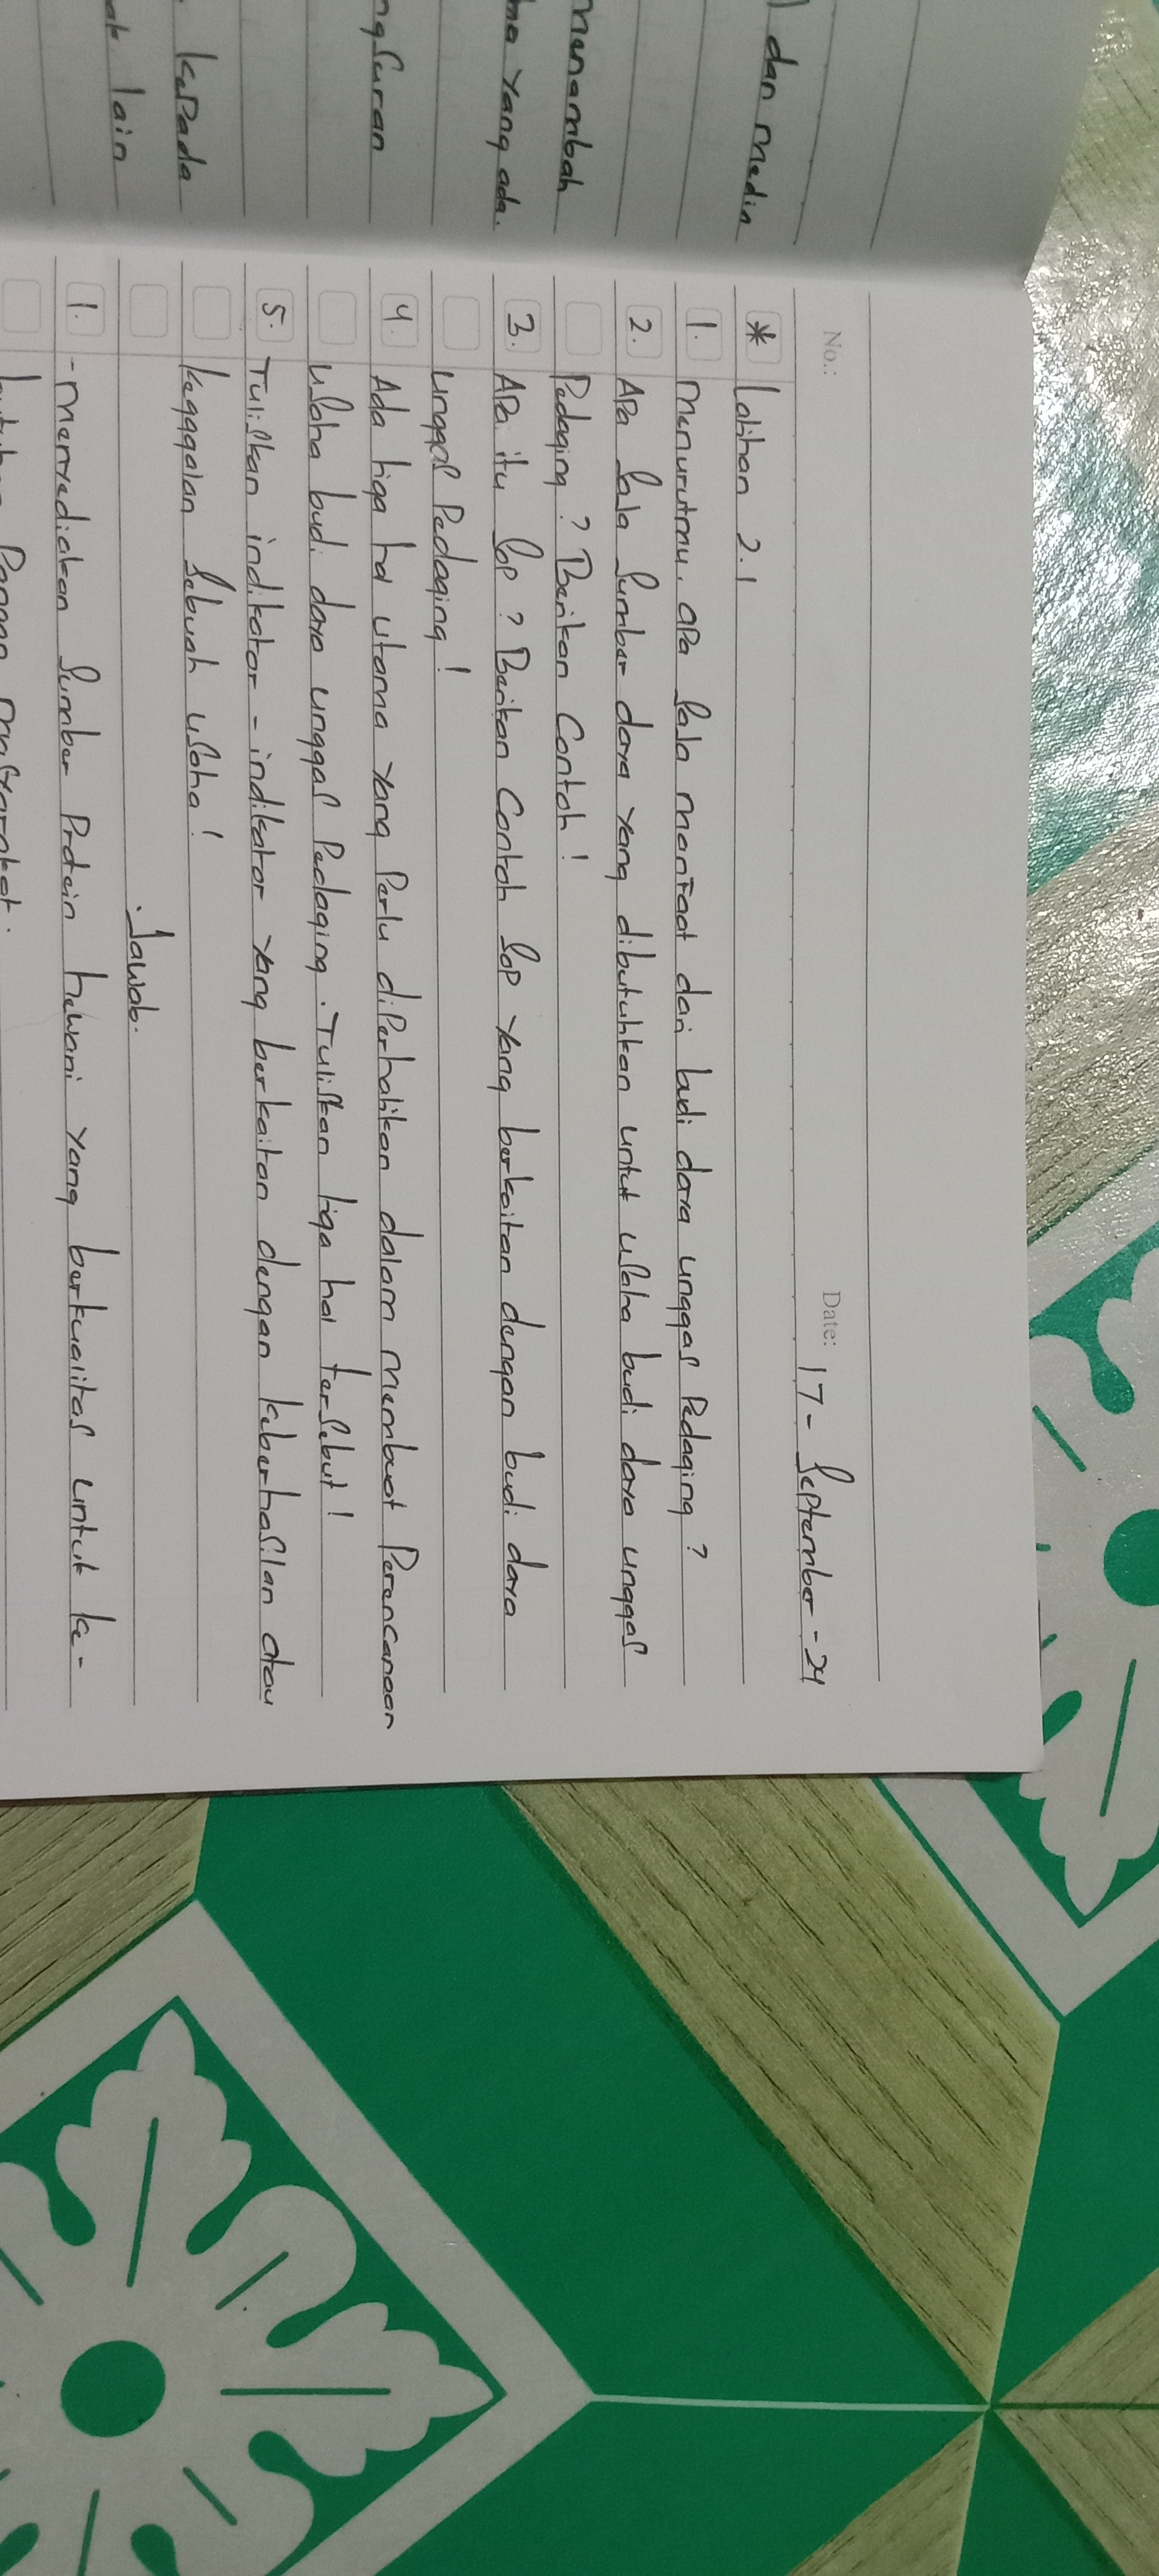 ) dan media
menambah
ma yang ada.
ngsuran
kepada
ak lain
No.:
Date: 17 - September - 24
* Latihan 2.1
1. Menurutmu, apa saja manfaat dari budi daya unggas Pedaging ?
2. Apa saja sumber daya yang dibutuhkan untuk usaha budi daya unggas
Pedaging ? Berikan Contoh !
3. Apa itu SOP ? Berikan Contoh SOP yang berkaitan dengan budi daya
unggas Pedaging !
4. Ada tiga hal utama yang Perlu diPerhatikan dalam membuat Perencanaan
usaha budi daya unggas Pedaging. Tuliskan tiga hal tersebut !
5. Tuliskan indikator - indikator yang berkaitan dengan keberhasilan atau
kegagalan sebuah usaha !
. Jawab.
1. - Menyediakan sumber Protein hewani yang berkualitas untuk ke-
butuhan Pangan masyarakat.